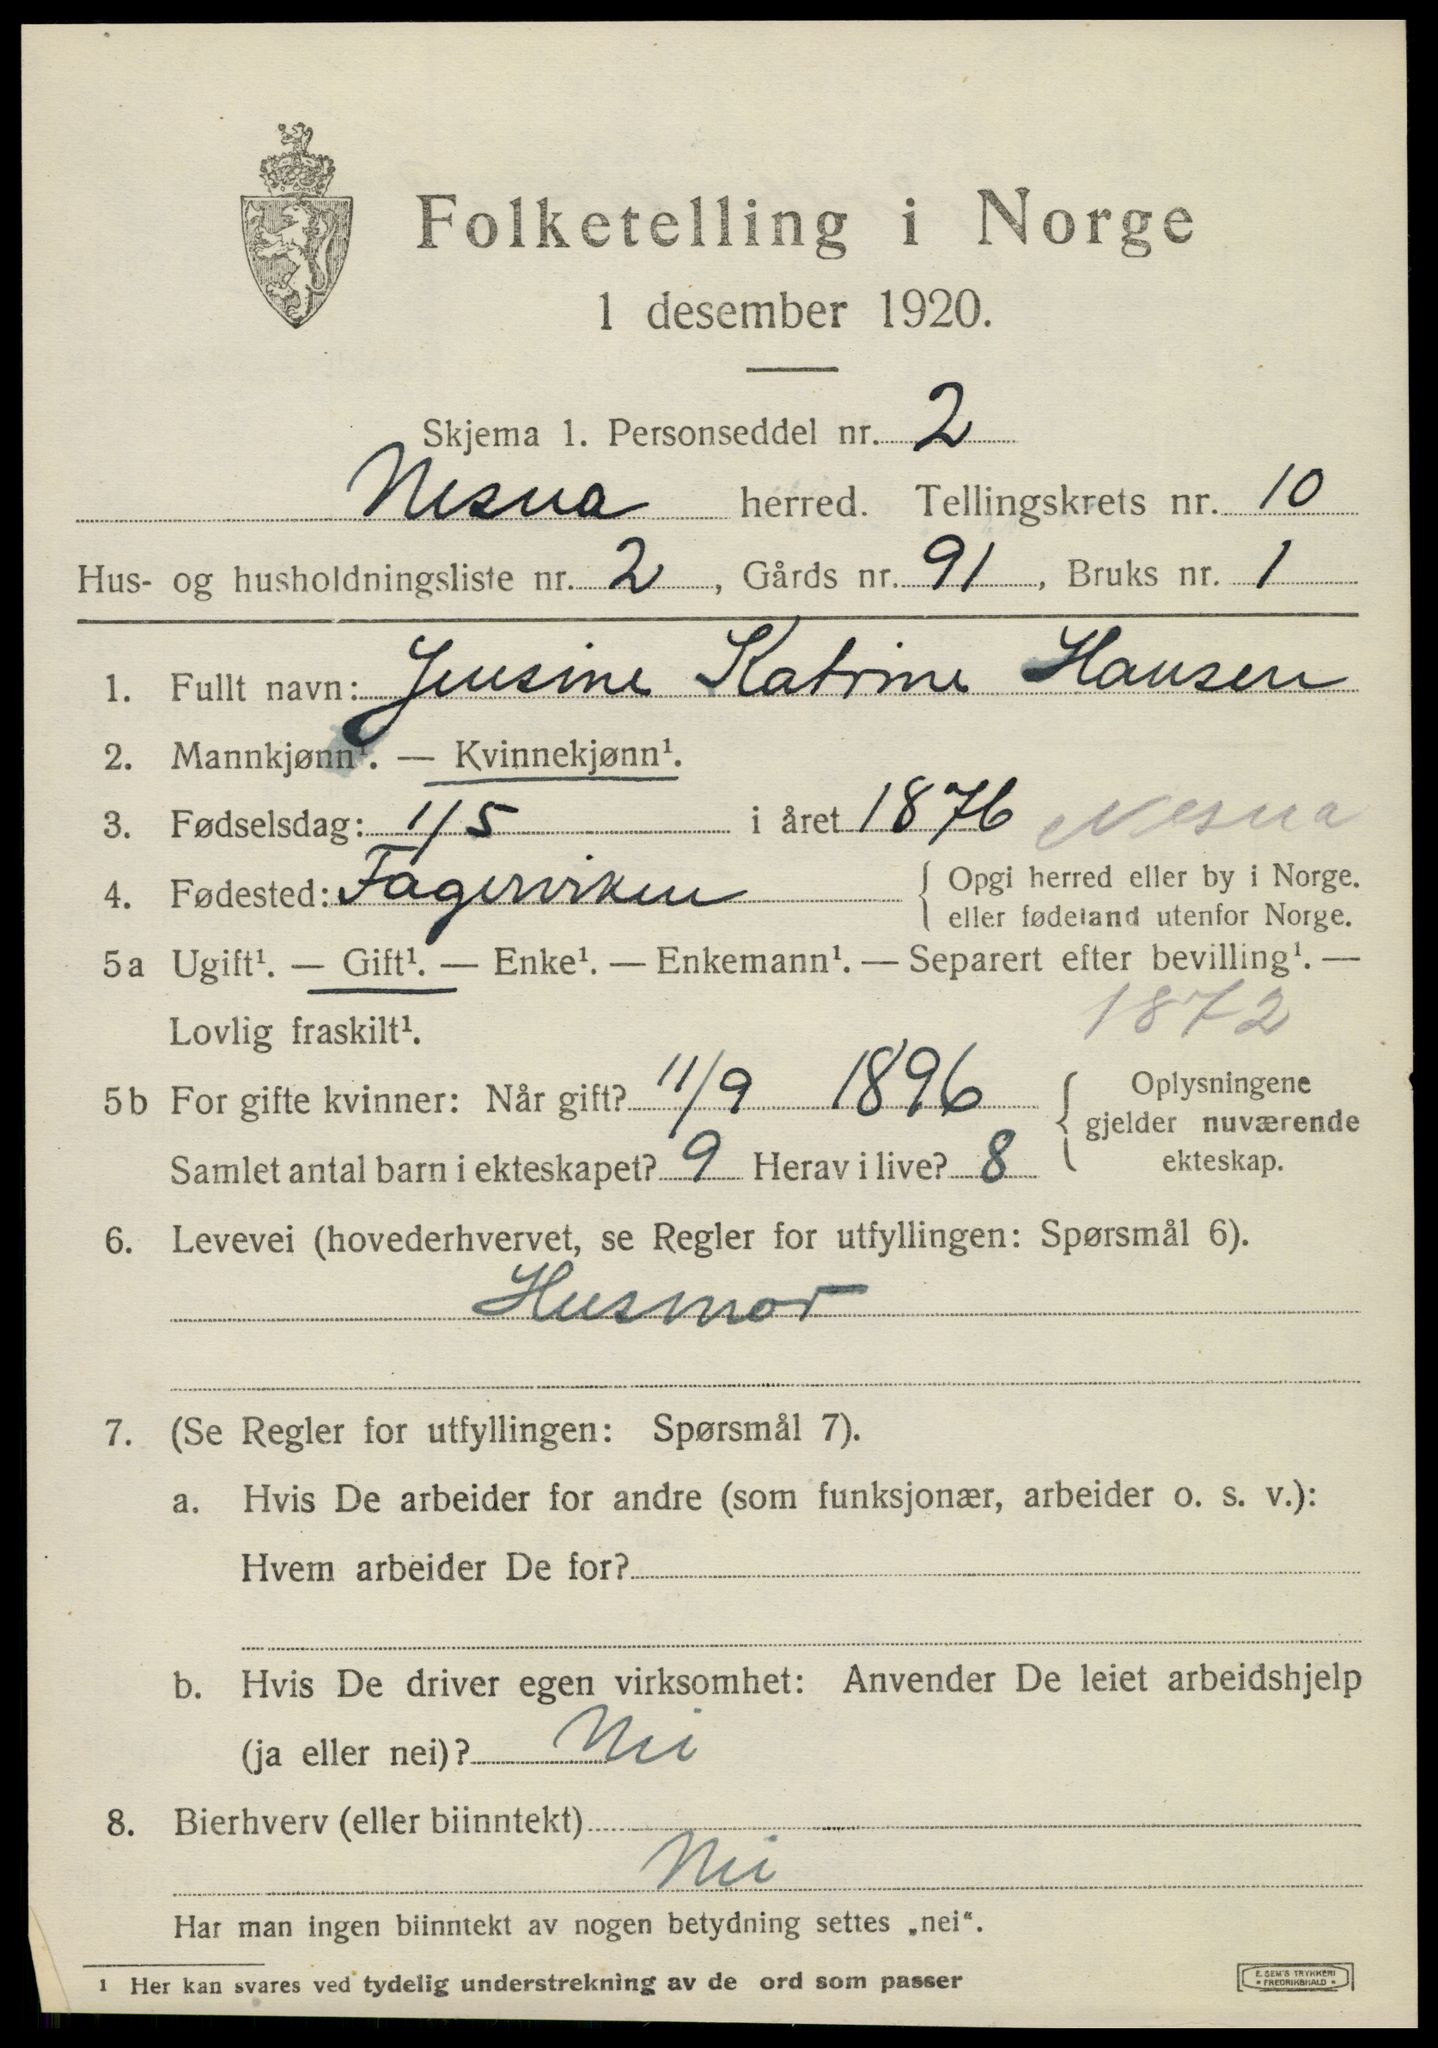 Folketelling i Norge
1 desember 1920.
Skjema 1. Personseddel nr. 2
Nesna herred. Tellingskrets nr. 10
Hus- og husholdningsliste nr. 2, Gårds nr. 91, Bruks nr. 1
1. Fullt navn: Jensine Katrine Hansen
2. Mannkjønn¹. — Kvinnekjønn¹.
3. Fødselsdag: 1/5 i året 1876 Nesna
4. Fødested: Fagervirken { Opgi herred eller by i Norge.
eller fødeland utenfor Norge.
5a Ugift¹. — Gift¹. — Enke¹. — Enkemann¹. — Separert efter bevilling¹. —
Lovlig fraskilt¹. 1872
5b For gifte kvinner: Når gift? 11/9 1896 { Oplysningene
gjelder nuværende
Samlet antal barn i ekteskapet? 9 Herav i live? 8 ekteskap.
6. Levevei (hovederhvervet, se Regler for utfyllingen: Spørsmål 6).
Husmor
7. (Se Regler for utfyllingen: Spørsmål 7).
a. Hvis De arbeider for andre (som funksjonær, arbeider o. s. v.):
Hvem arbeider De for?
b. Hvis De driver egen virksomhet: Anvender De leiet arbeidshjelp
(ja eller nei)? Nei
8. Bierhverv (eller biinntekt)
Nei
Har man ingen biinntekt av nogen betydning settes „nei“.
¹ Her kan svares ved tydelig understrekning av de ord som passer
E. SEM'S TRYKKERI
FREDRIKSHALD